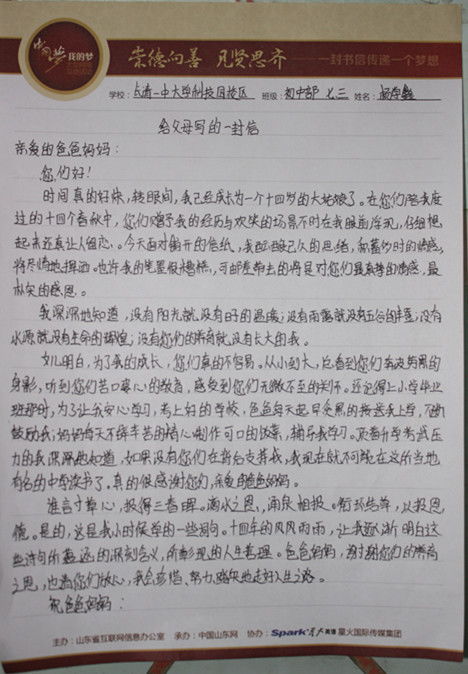 中国梦 我的梦
崇德向善 见贤思齐 一封书信传递一个梦想
学校: 上海一中大学科技园校区 班级: 初中部 七三 姓名:
给父母写的一封信
亲爱的爸爸妈妈:
您们好!
时间真的好快,转眼间,我已经成长为一个十四岁的大姑娘了。在你们陪我度
过的十四个春秋中,您们赠予我的经历与欢笑的场景不时在我眼前浮现,仔细想
起来还真让人留恋。今天面对铺开的信纸,我酝酿已久的思绪,和蓄势时的情感,
将尽情地挥洒。也许我的笔墨很糟糕,可却是带出的将是对你们最真挚的情感,最
朴实的感恩。
我深深地知道,没有阳光就没有好的温暖;没有雨露就没有五谷的丰登;没有
水源就没有生命的辉煌;没有您们的养育就没有长大的我。
女儿明白,为了我的成长,您们真的不容易。从小到大,总看到您们奔波劳累的
身影,听到您们苦口婆心的教育,感受到您们无微不至的关怀。还记得上小学毕业
班那时,为了让我安心学习,考上好的学校,爸爸每天起早贪黑的接送我上学,不断
鼓励我;妈妈每天不辞辛苦的精心制作可口的饭菜,辅导我学习。顶着升学考试压
力的我深深地知道,如果没有您们在背后支持我,我现在就不可能在这所当地
有名的中学读书了。真的很感谢你们,亲爱的爸爸妈妈。
谁言寸草心,报得三春晖。滴水之恩,涌泉相报。衔环结草,以报恩
德。是的,这是我小时候学的一些词句。十四年的风风雨雨,让我逐渐明白这
些诗句所蕴涵的深刻含义,所彰现的人生哲理。爸爸妈妈,谢谢您们的养育
之恩,也请您们放心,我会珍惜、努力踏实地走好人生之路。
祝爸爸妈妈:
主办:山东省互联网信息办公室 承办:中国山东网 协办:Spark 星火英语 星火国际传媒集团